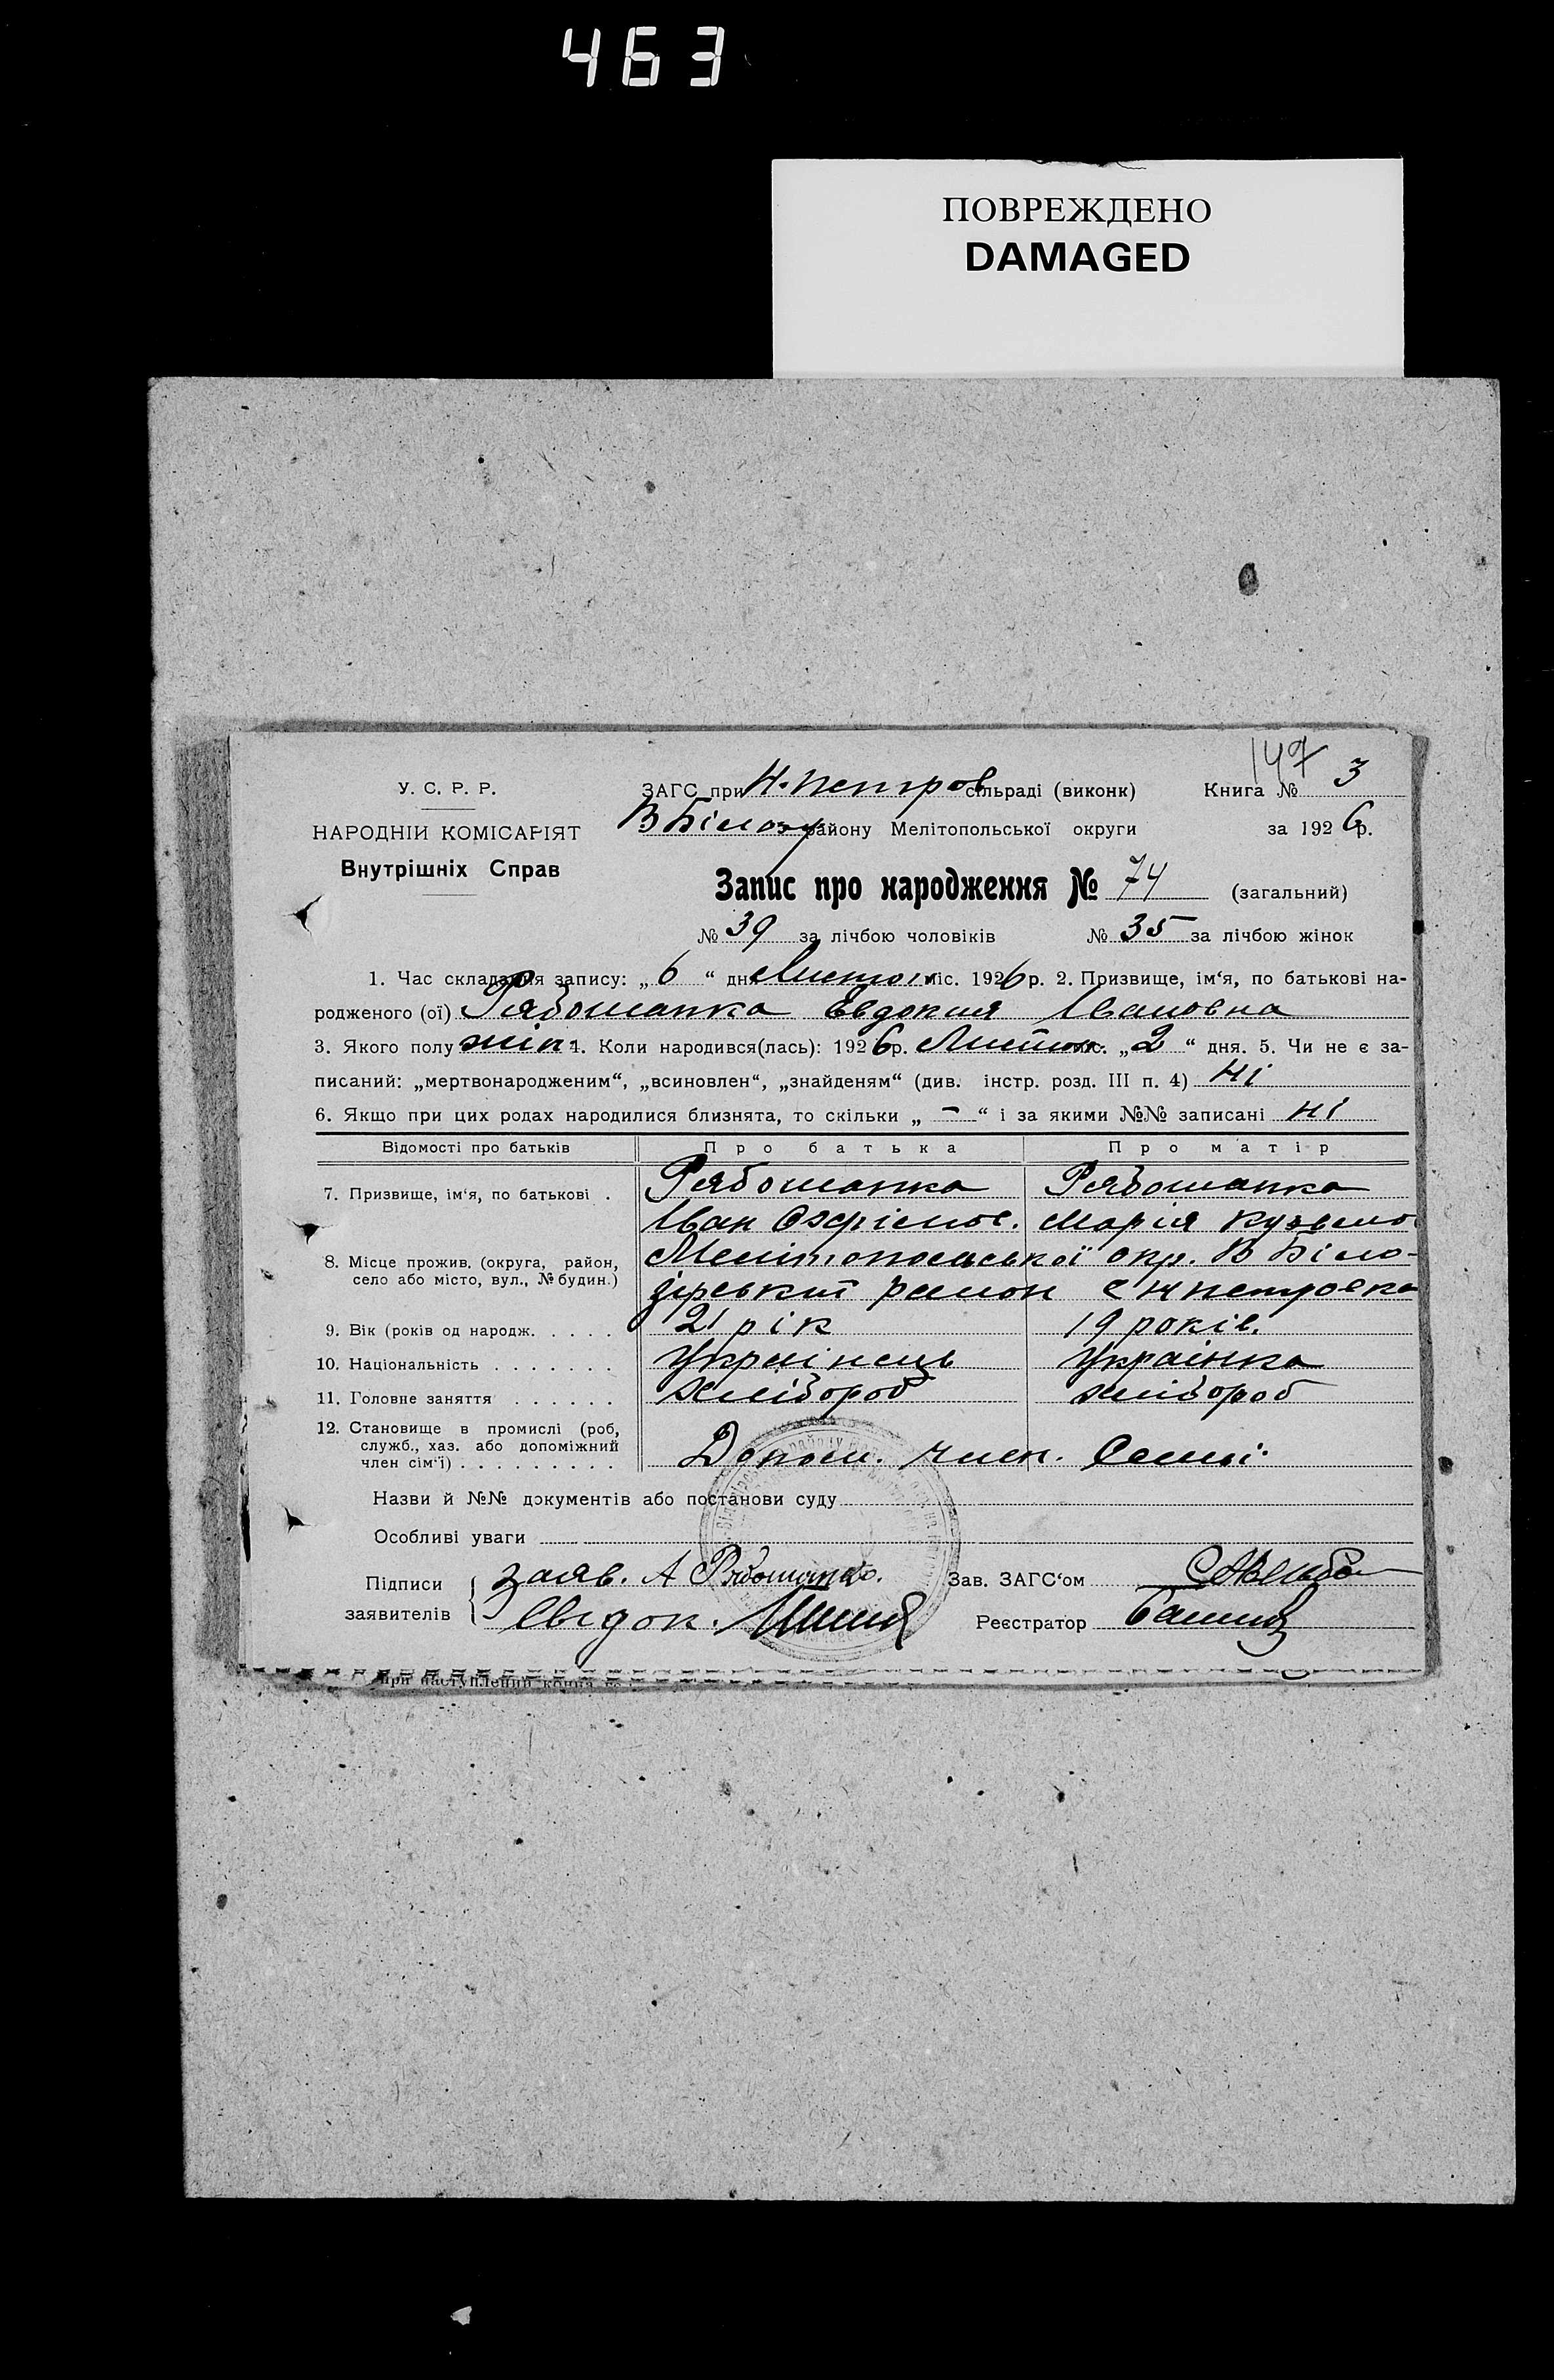 463
ПОВРЕЖДЕНО
DAMAGED
147
У. С. Р. Р. ЗАГС при Н.петров сільраді (виконк) Книга № 3
НАРОДНІЙ КОМІСАРІЯТ В Білозір району Мелітопольської округи за 1926 р.
Внутрішніх Справ
Запис про народження № 74 (загальний)
№ 39 за лічбою чоловіків № 35 за лічбою жінок
1. Час складання запису: „ 6 “ дня Листоп міс. 1926 р. 2. Призвище, ім‘я, по батькові на-
родженого (ої) Рябошапка Евдокия Ивановна
3. Якого полу жін 4. Коли народився(лась): 1926 р. Листоп. міс. „ 2 “ дня. 5. Чи не є за-
писаний: „мертвонародженим“, „всиновлен“, „знайденям“ (див. інстр. розд. III п. 4) Ні
6. Якщо при цих родах народилися близнята, то скільки „ - “ і за якими №№ записані Ні
Відомості про батьків Про батька Про матір
7. Призвище, ім‘я, по батькові . Рябошапка Рябошапка
Иван Марія Кузьмо
8. Місце прожив. (округа, район, Мелітопольської окр. В Біло-
село або місто, вул., № будин.) зірський район с Н петровка
9. Вік (років од народж. . . . . 21 рік 19 років.
10. Національність . . . . . . . Українець Українка
11. Головне заняття . . . . . . хлібороб хлібороб
12. Становище в промислі (роб,
служб., хаз. або допоміжний
член сім‘ї) . . . . . . . . . Допом. член. Семьі
Назви й №№ документів або постанови суду
Особливі уваги
Підписи заяв. А Рябошапка. Зав. ЗАГС‘ом
заявителів Свідок. Реєстратор
при наступлении конца